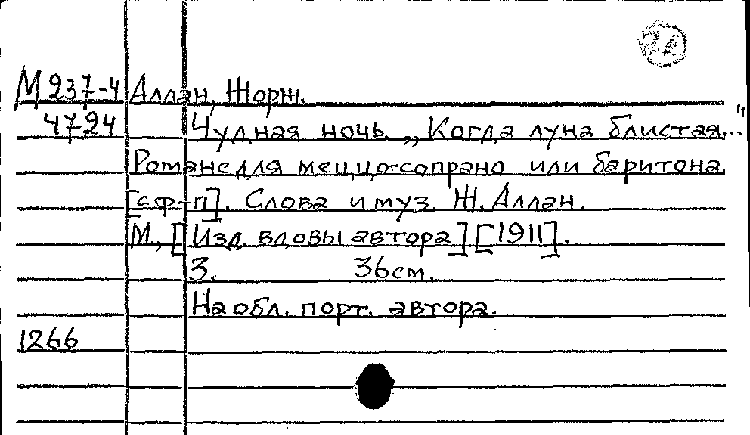 М 237-4 Аллан, Жорж.
4724 Чудная ночь. „Когда луна блистая..."
Романс для меццо-сопрано или баритона
[с ф-п]. Слова и муз. Ж. Аллан.
М., [Изд. вдовы автора] [1911].
3. 36 см.
На обл. порт. автора.
1266